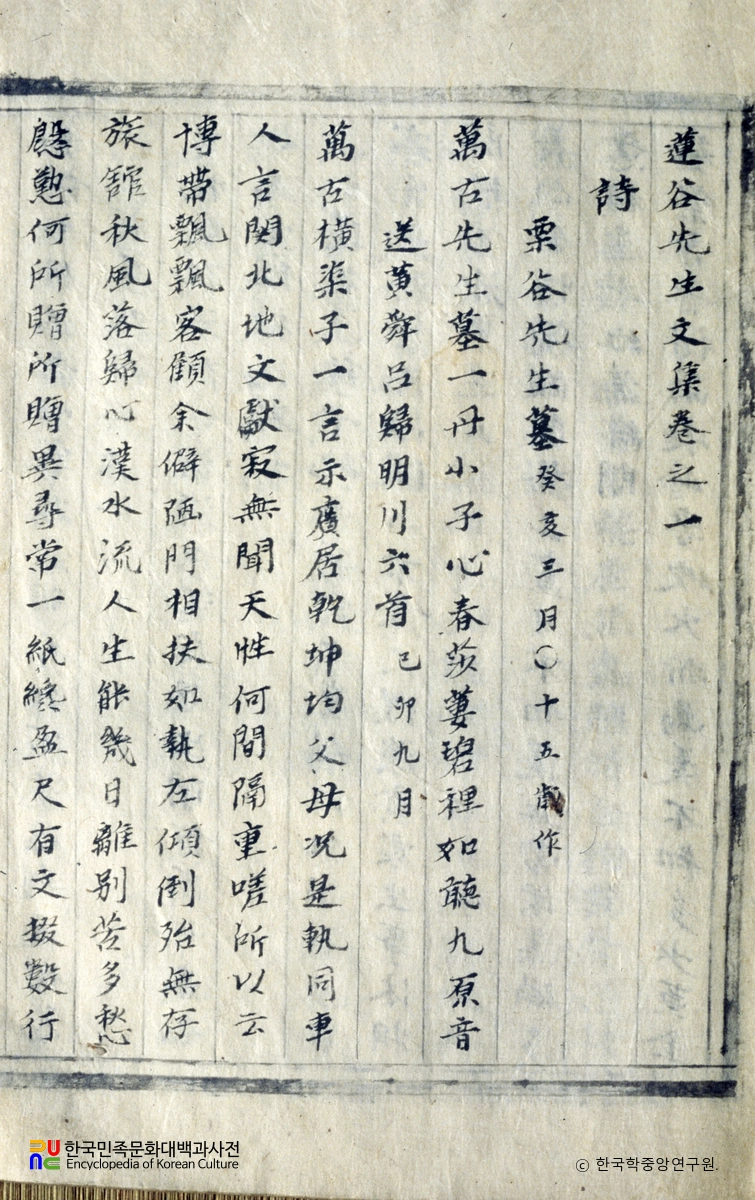 蓮谷先生文集卷之一
詩
栗谷先生墓 癸亥三月〇十五歲作
萬古先生墓一丹小子心春莎萋碧裡如聽九原音
送黃舜呂歸明川六首 己卯九月
萬古橫渠子一言示廣居乾坤均父母况是執同車
人言関北地文獻寂無聞天性何間隔重嗟所以云
博帶飄飄客顧余僻陋門相扶如執左傾倒殆無存
旅舘秋風落歸心漢水流人生能幾日離別苦多愁
慇懃何所贈所贈異尋常一紙纔盈尺有文掇數行
한국민족문화대백과사전
Encyclopedia of Korean Culture
ⓒ 한국학중앙연구원.